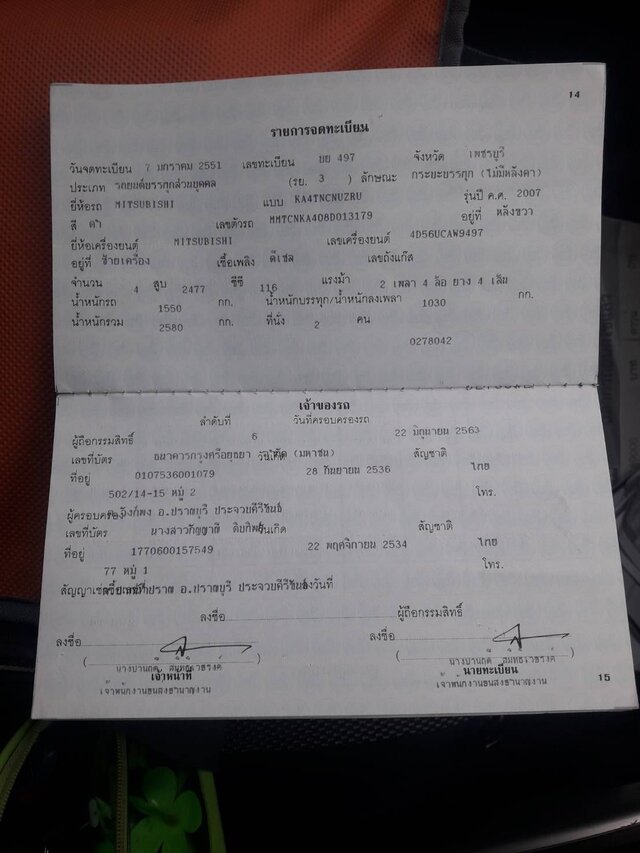 14
รายการจดทะเบียน
วันจดทะเบียน 7 มกราคม 2551 เลขทะเบียน บย 497 จังหวัด เพชรบุรี
ประเภท รถยนต์บรรทุกส่วนบุคคล (รย. 3 ) ลักษณะ กระบะบรรทุก (ไม่มีหลังคา)
ยี่ห้อรถ MITSUBISHI แบบ KA4TNCNUZRU รุ่นปี ค.ศ. 2007
สี ดำ เลขตัวรถ MMTCNKA408D013179 อยู่ที่ หลังขวา
ยี่ห้อเครื่องยนต์ MITSUBISHI เลขเครื่องยนต์ 4D56UCAW9497
อยู่ที่ ซ้ายเครื่อง เชื้อเพลิง ดีเซล เลขถังแก๊ส
จำนวน 4 สูบ 2477 ซีซี 116 แรงม้า 2 เพลา 4 ล้อ ยาง 4 เส้น
น้ำหนักรถ 1550 กก. น้ำหนักบรรทุก/น้ำหนักลงเพลา 1030 กก.
น้ำหนักรวม 2580 กก. ที่นั่ง 2 คน
0278042
เจ้าของรถ
ลำดับที่ 6 วันที่ครอบครองรถ 22 มิถุนายน 2563
ผู้ถือกรรมสิทธิ์ ธนาคารกรุงศรีอยุธยา จำกัด (มหาชน)
เลขที่บัตร 0107536001079 วันเกิด 28 กันยายน 2536 สัญชาติ ไทย
ที่อยู่ 502/14-15 หมู่ 2 โทร.
อ.ปราณบุรี ประจวบคีรีขันธ์
ผู้ครอบครอง นางสาวกัญญาณี
เลขที่บัตร 1770600157549 วันเกิด 22 พฤศจิกายน 2534 สัญชาติ ไทย
ที่อยู่ 77 หมู่ 1 โทร.
อ.ปราณบุรี ประจวบคีรีขันธ์
สัญญาเช่าซื้อเลขที่ ลงวันที่
ลงชื่อ ผู้ถือกรรมสิทธิ์
ลงชื่อ ลงชื่อ
เจ้าหน้าที่ นายทะเบียน
เจ้าพนักงานขนส่งชำนาญงาน เจ้าพนักงานขนส่งชำนาญงาน
15